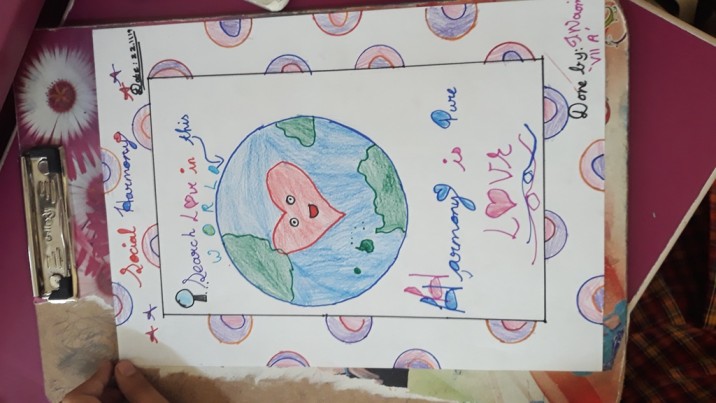 Social Harmony
Search Love in this
WORLD
Harmony is Pure
LOVE
Done by:
VII 'A'